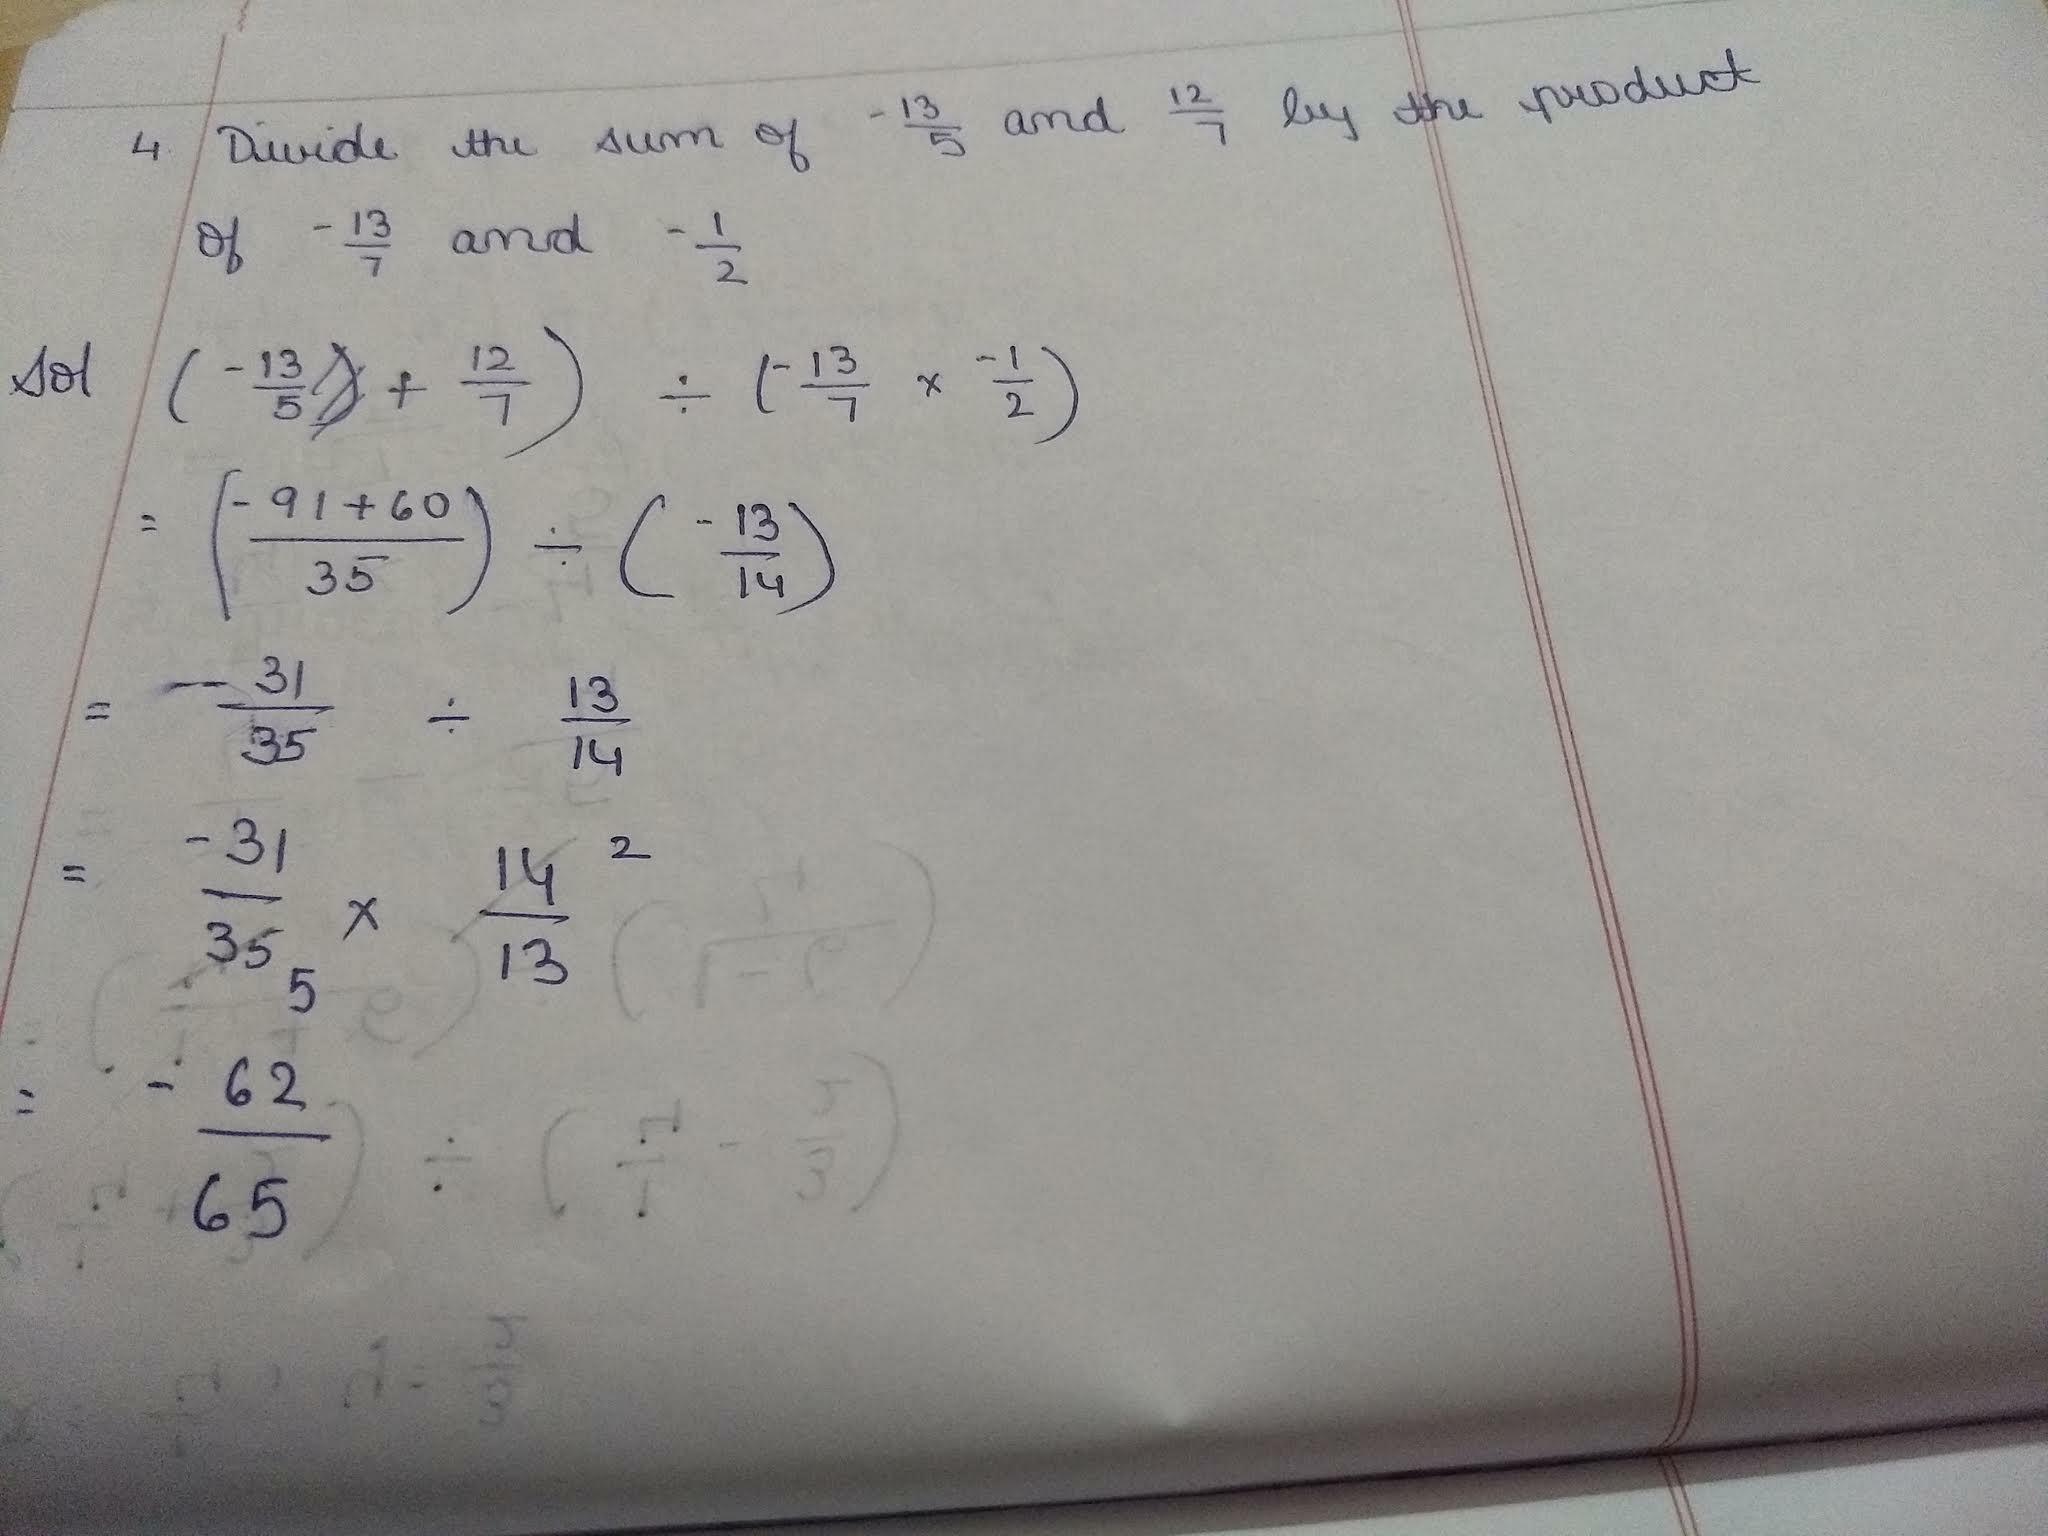 4. Divide the sum of -13/5 and 12/7 by the product
of -13/7 and -1/2
Sol (-13/5 + 12/7) ÷ (-13/7 × -1/2)
= (-91+60/35) ÷ (-13/14)
= -31/35 ÷ 13/14
= -31/35 5 × 14/13 2
= -62/65